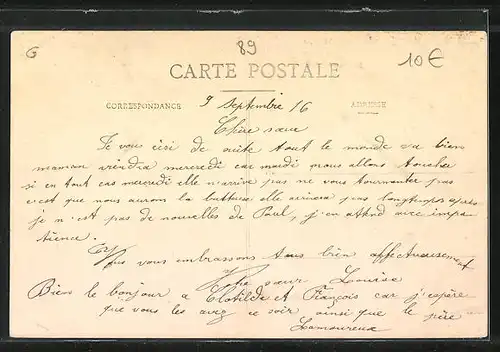 G
89
10€
CARTE POSTALE
CORRESPONDANCE
ADRESSE
9 septembre 16
Chère sœur
Je vous ecri de suite tout le monde va bien
maman viendra mercredi car mardi nous allons toucher
si en tout cas mercredi elle n'arrive pas ne vous tourmenter pas
c'est que nous aurons la batteuse elle arrivera pas longtemps après
je n'est pas de nouvelles de Paul, j'en attend avec impa
tience.
Nous vous embrassons tous bien affectueusement
sœur Louise
Bien le bonjour a Clotilde et François car j'espère
que vous les aurez ce soir ainsi que le père
Lamoureux